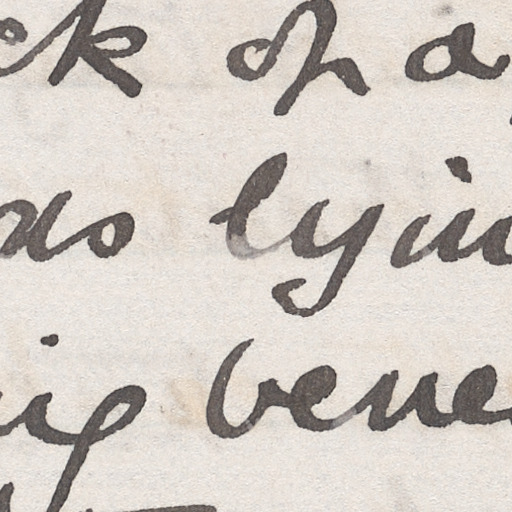 ck of a
as lyin
ig bene